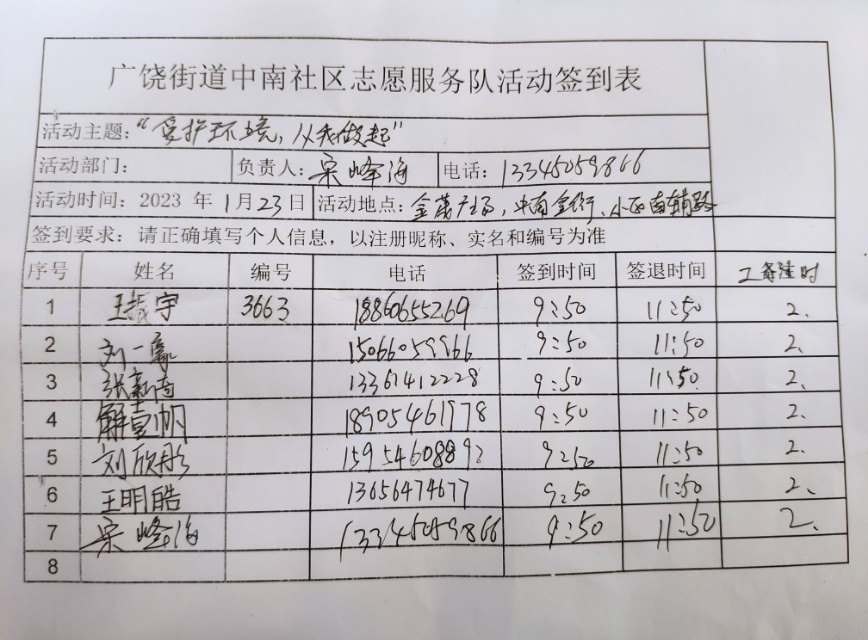 广饶街道中南社区志愿服务队活动签到表
活动主题:“爱护环境,从我做起”
活动部门: 负责人:宋峰海 电话:13345059866
活动时间:2023 年 1月 23日 活动地点:金茂广场,中南金街、小区南辅路
签到要求:请正确填写个人信息,以注册昵称、实名和编号为准
序号 姓名 编号 电话 签到时间 签退时间 工时
1 王振宇 3663 18860655269 9:50 11:50 2、
2 刘一 15066059966 9:50 11:50 2、
3 张 13361412228 9:50 11:50 2、
4 解 帆 18905461978 9:50 11:50 2、
5 刘欣彤 15954608892 9:50 11:50 2、
6 王明皓 13656474677 9:50 11:50 2、
7 宋峰海 13345059866 9:50 11:50 2、
8